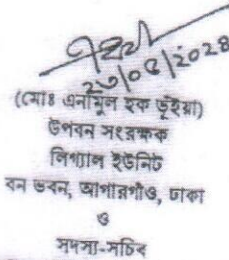 ২৩/০৫/২০২৪
(মোঃ এনামুল হক ভূঁইয়া)
উপবন সংরক্ষক
লিগ্যাল ইউনিট
বন ভবন, আগারগাঁও, ঢাকা
ও
সদস্য-সচিব